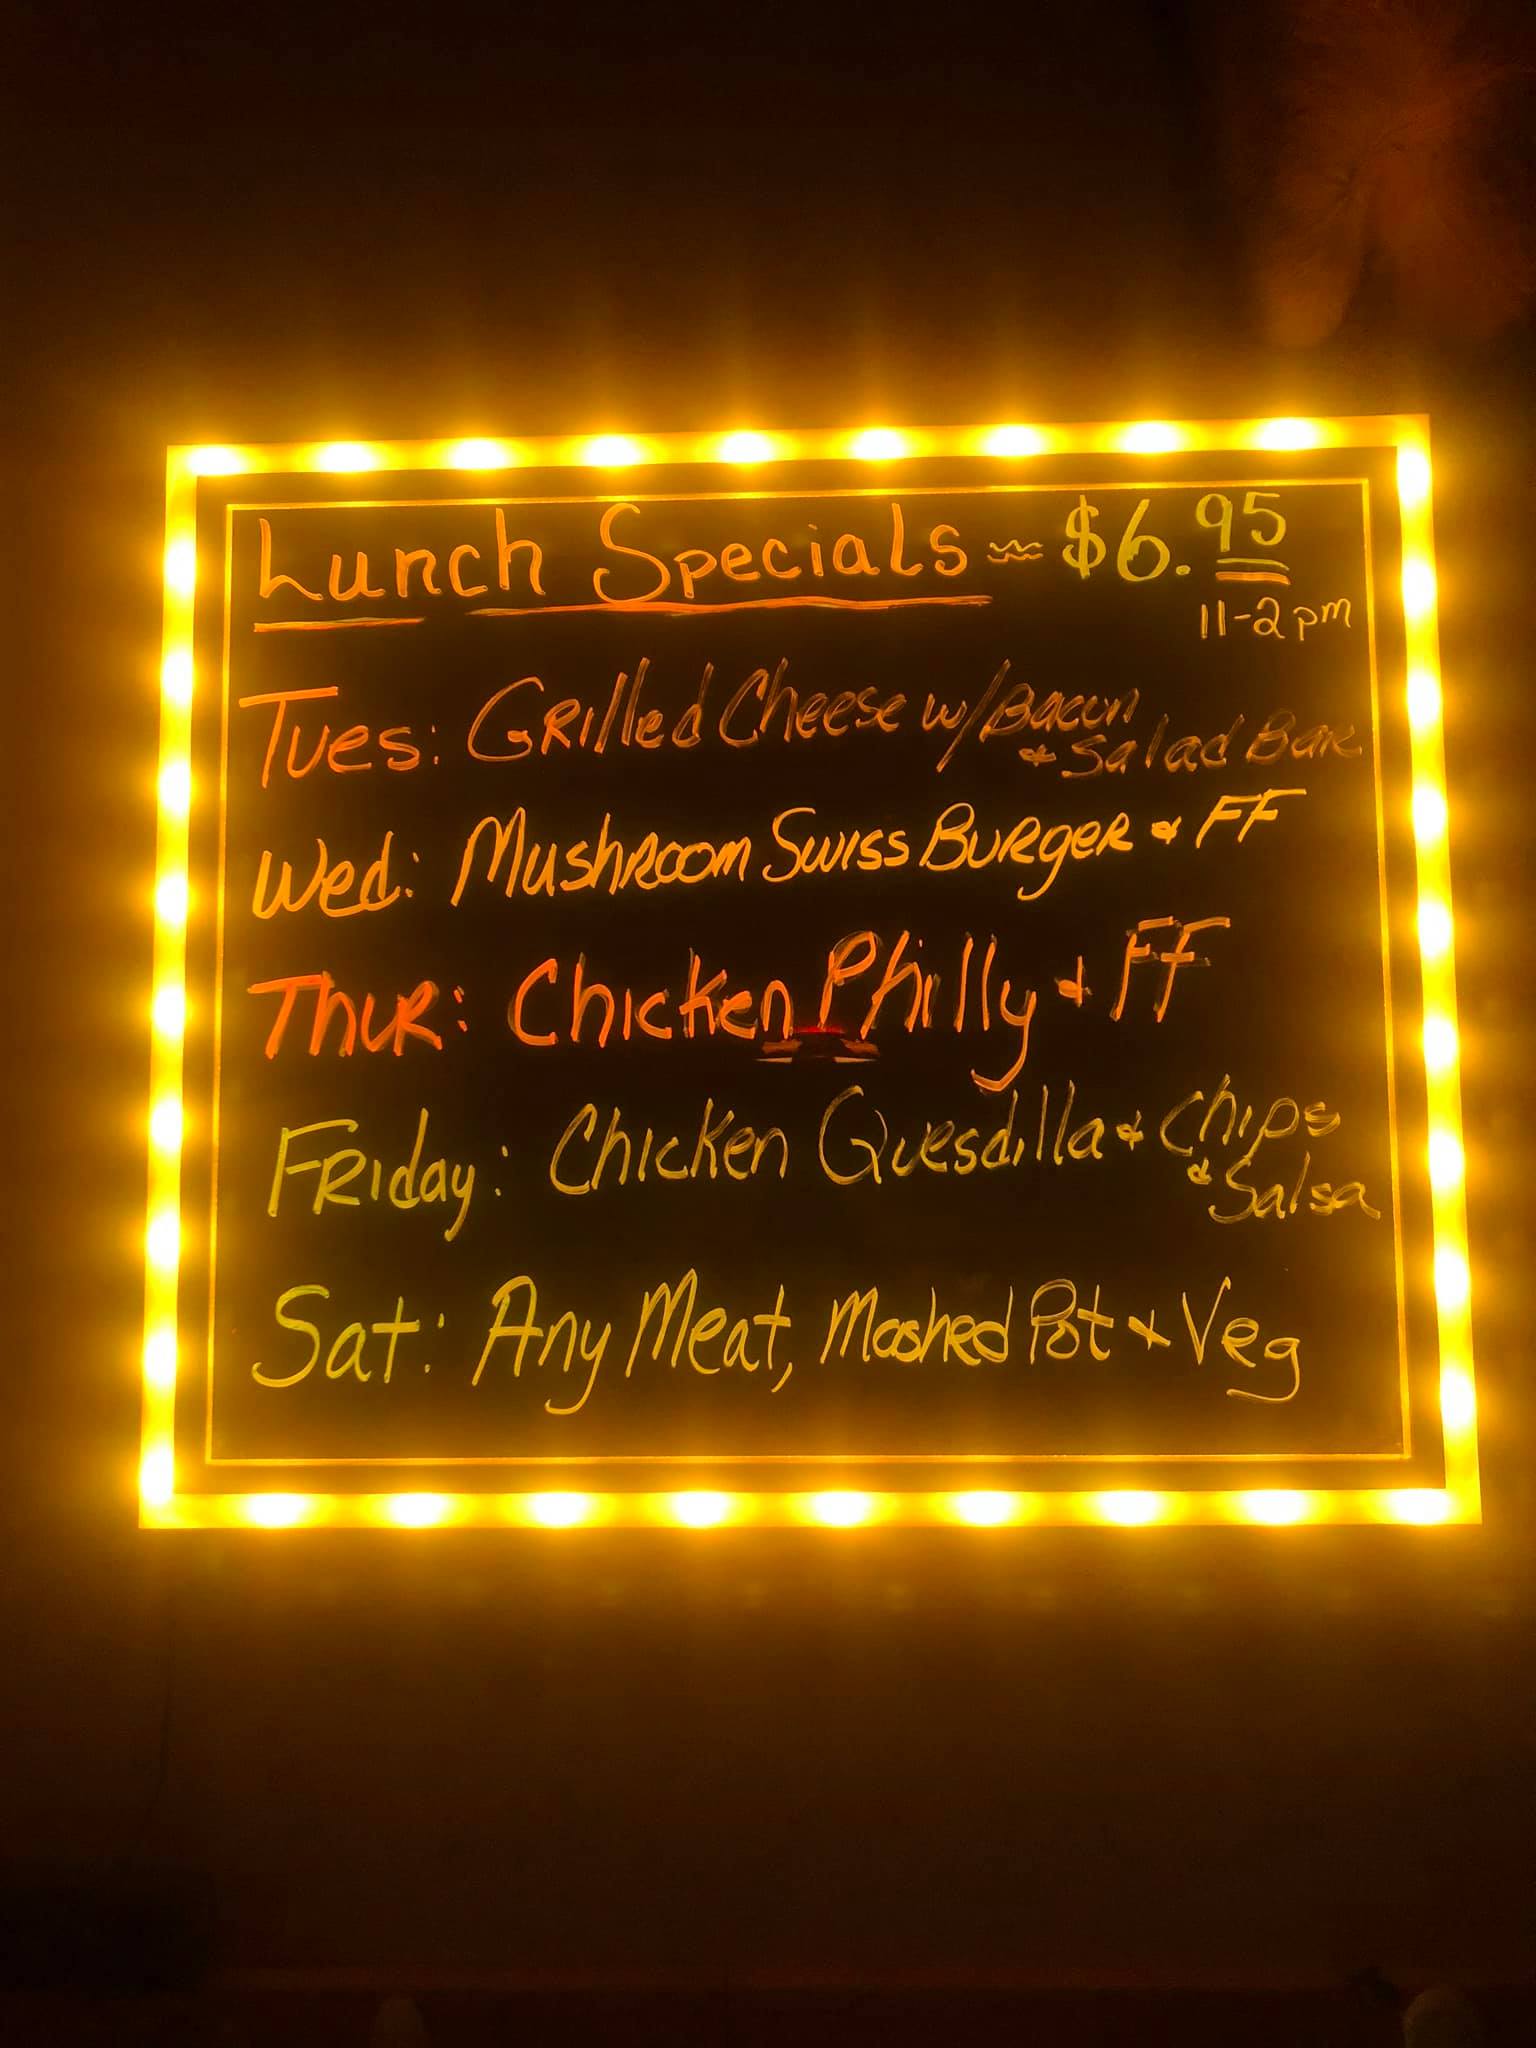 Lunch Specials ~ $6.95
11-2pm
Tues: Grilled Cheese w/Bacon
& Salad Bar
Wed: Mushroom Swiss Burger & FF
Thur: Chicken Philly & FF
Friday: Chicken Quesdilla & Chips
& Salsa
Sat: Any Meat, Mashed Pot & Veg